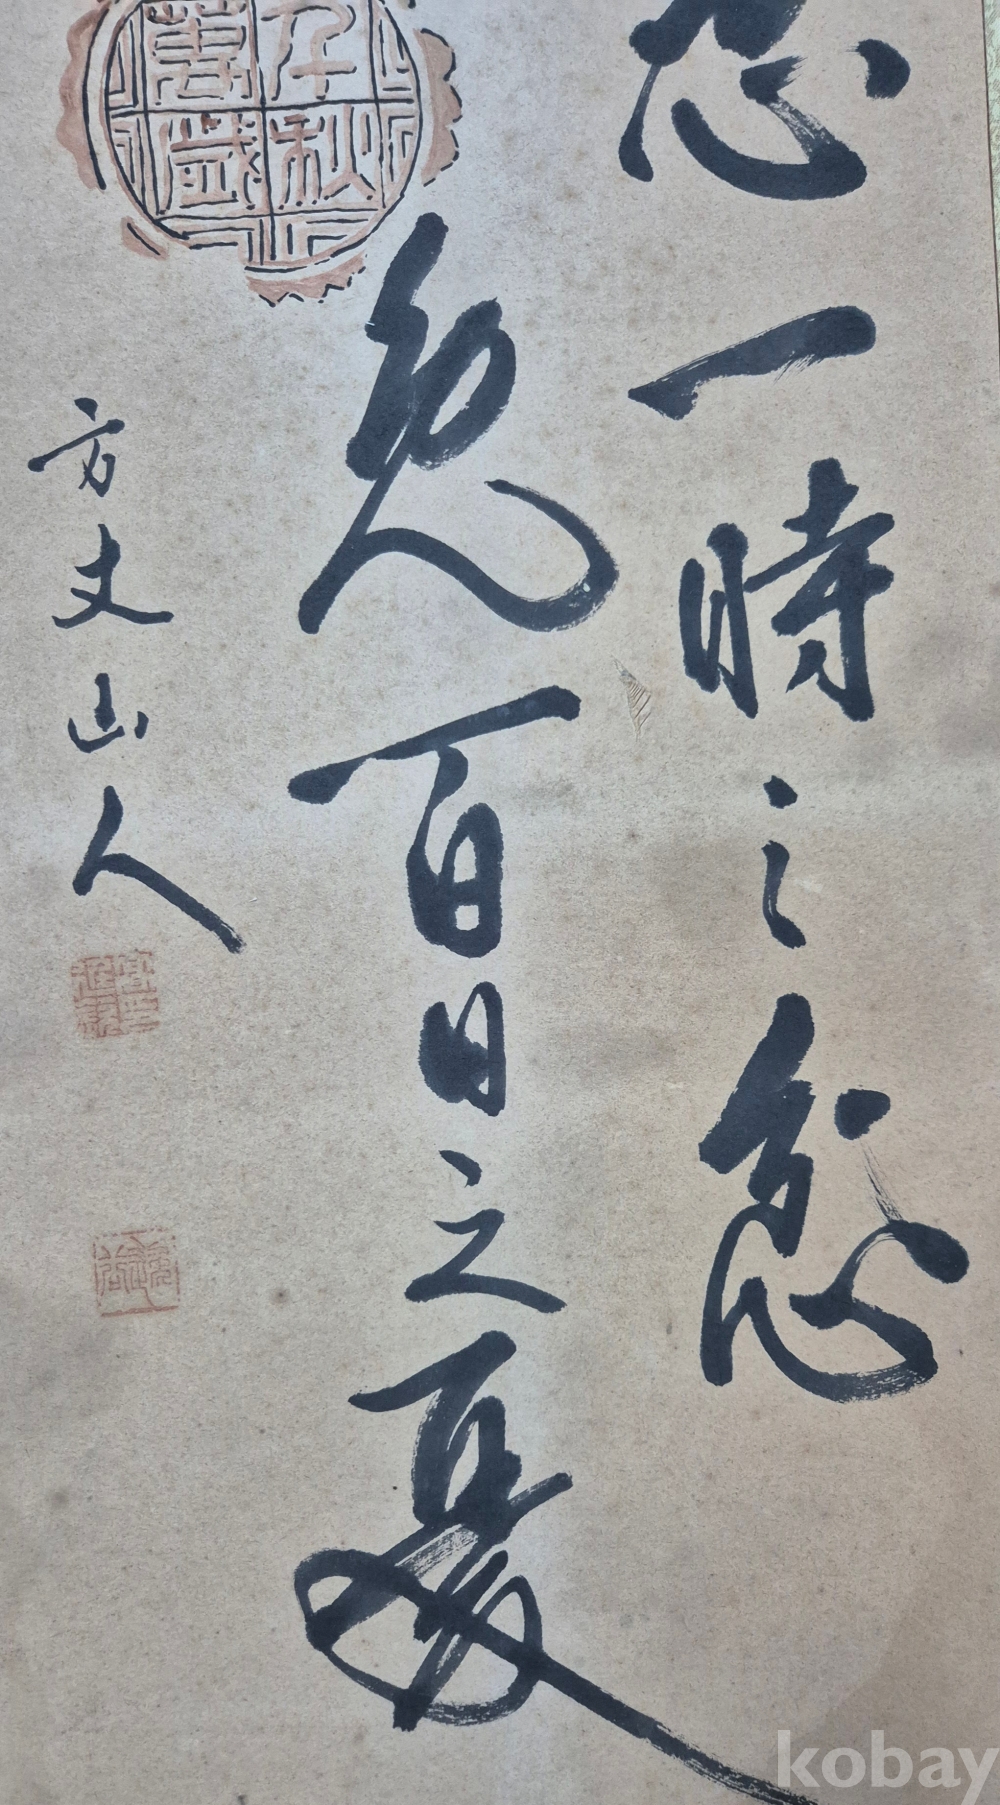 忍一時之忿
免百日之憂
千秋
萬歲
方丈山人
kobay